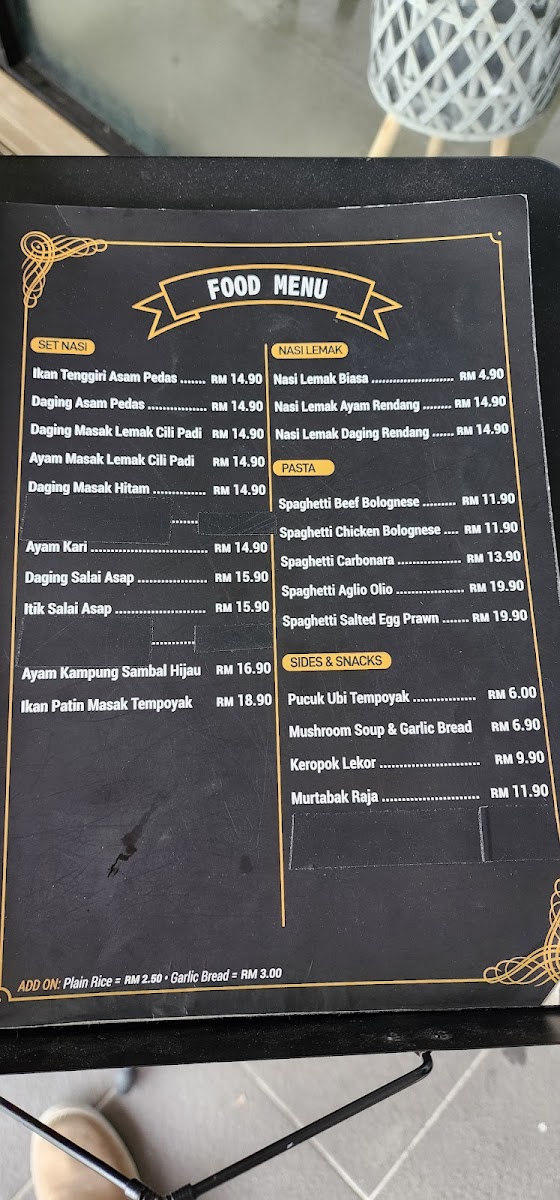 FOOD MENU
SET NASI
Ikan Tenggiri Asam Pedas ....... RM 14.90
Daging Asam Pedas ................ RM 14.90
Daging Masak Lemak Cili Padi RM 14.90
Ayam Masak Lemak Cili Padi RM 14.90
Daging Masak Hitam .............. RM 14.90
Ayam Kari ............................... RM 14.90
Daging Salai Asap .................. RM 15.90
Itik Salai Asap ........................ RM 15.90
Ayam Kampung Sambal Hijau RM 16.90
Ikan Patin Masak Tempoyak RM 18.90
NASI LEMAK
Nasi Lemak Biasa ........................ RM 4.90
Nasi Lemak Ayam Rendang ........ RM 14.90
Nasi Lemak Daging Rendang ...... RM 14.90
PASTA
Spaghetti Beef Bolognese ......... RM 11.90
Spaghetti Chicken Bolognese .... RM 11.90
Spaghetti Carbonara .................. RM 13.90
Spaghetti Aglio Olio ................... RM 19.90
Spaghetti Salted Egg Prawn ....... RM 19.90
SIDES & SNACKS
Pucuk Ubi Tempoyak ................. RM 6.00
Mushroom Soup & Garlic Bread RM 6.90
Keropok Lekor .......................... RM 9.90
Murtabak Raja .......................... RM 11.90
ADD ON: Plain Rice = RM 2.50 • Garlic Bread = RM 3.00